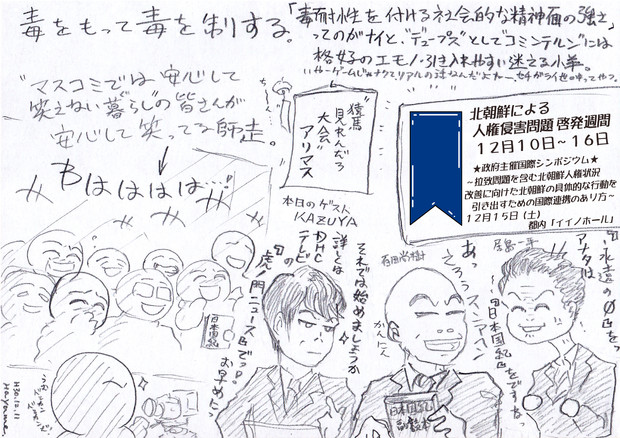 毒をもって毒を制する。
「毒耐性を付ける社会的な精神面の強さ」
ってのがナイと、"デュープス"として"コミンテルン"には
格好のエモノ。引き入れやすい迷える小羊。
"マスコミでは安心して
笑えない暮らし"の皆さんが
安心して笑ってる師走。
わはははは…。
"猿馬
見れんだろ
大会"
アリマス
北朝鮮による
人権侵害問題 啓発週間
12月10日~16日
★政府主催国際シンポジウム★
~拉致問題を含む北朝鮮人権状況
改善に向けた北朝鮮の具体的な行動を
引き出すための国際連携のあり方~
12月15日(土)
都内「イイノホール」
本日のゲスト
KAZUYA
それでは始めましょうか
詳しくは
DHC
テレビ
『虎ノ門ニュース』でっ。
お早めにっ
百田尚樹
あっ
えろうスンマヘン
かんにん
『日本国紀』をですなっ
居島一平
アナタは
『永遠の0』をっ
日本国紀
日本国紀
副読本
H30.12.11
Hayame